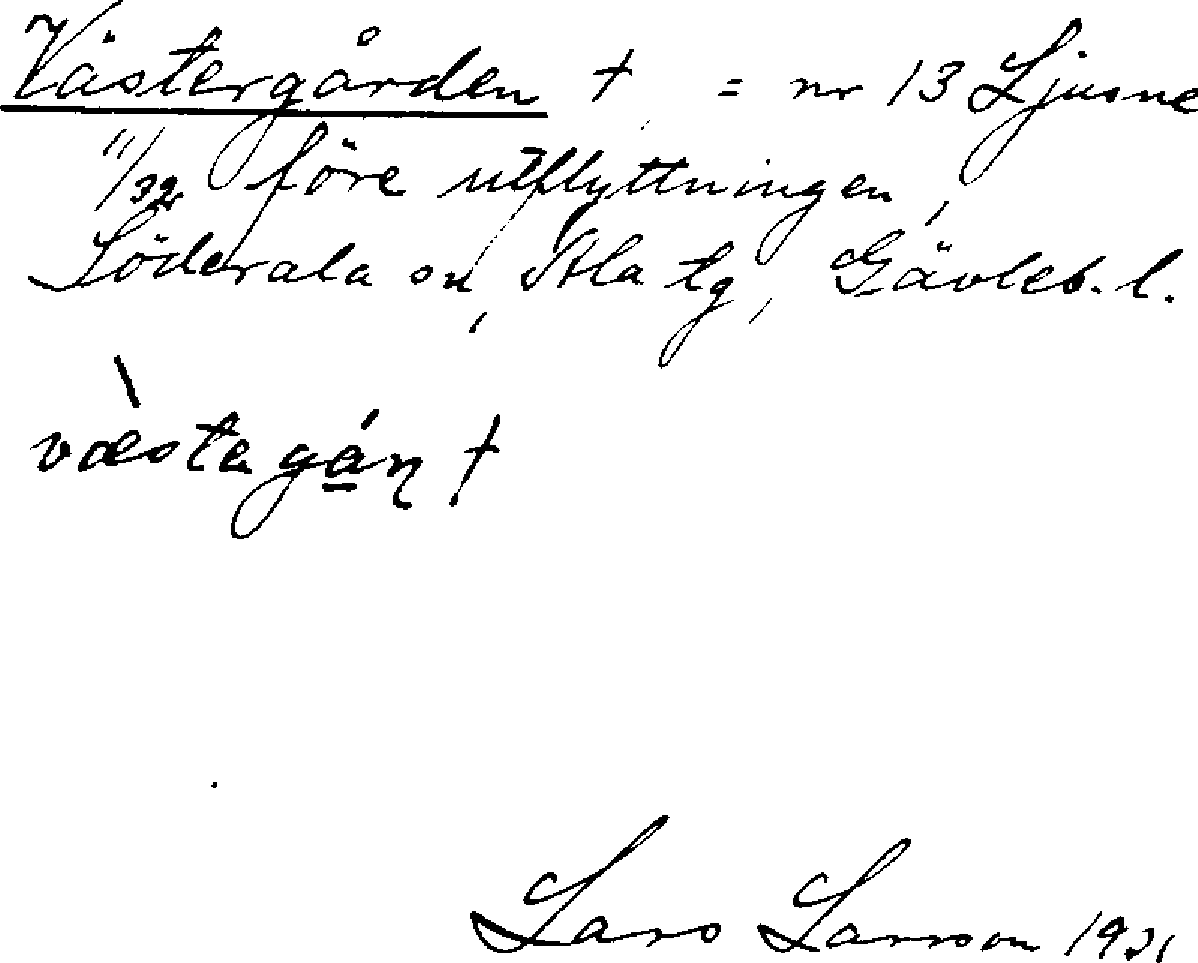 Västergården † = nr 13 Ljusne
11/32 före utflyttningen,
Söderala sn, Ala tg, Gävleb. l.
væstagán †
Lars Larsson 1931